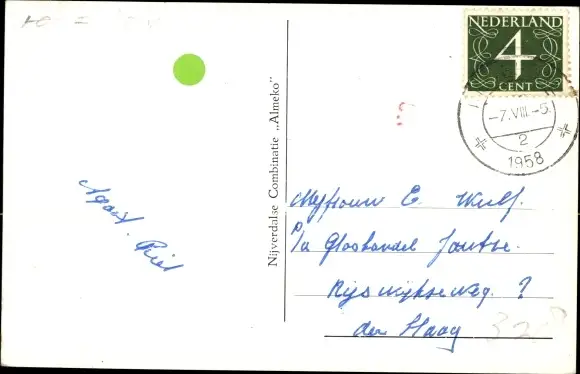 NEDERLAND
4
CENT
-7.VIII.-5.
2
1958
Nijverdalse Combinatie „Almeko"
Mejfrouw E. Wulf.
P/a Glashandel Jautse.
Rijswijkseweg. ?
den Haag
328